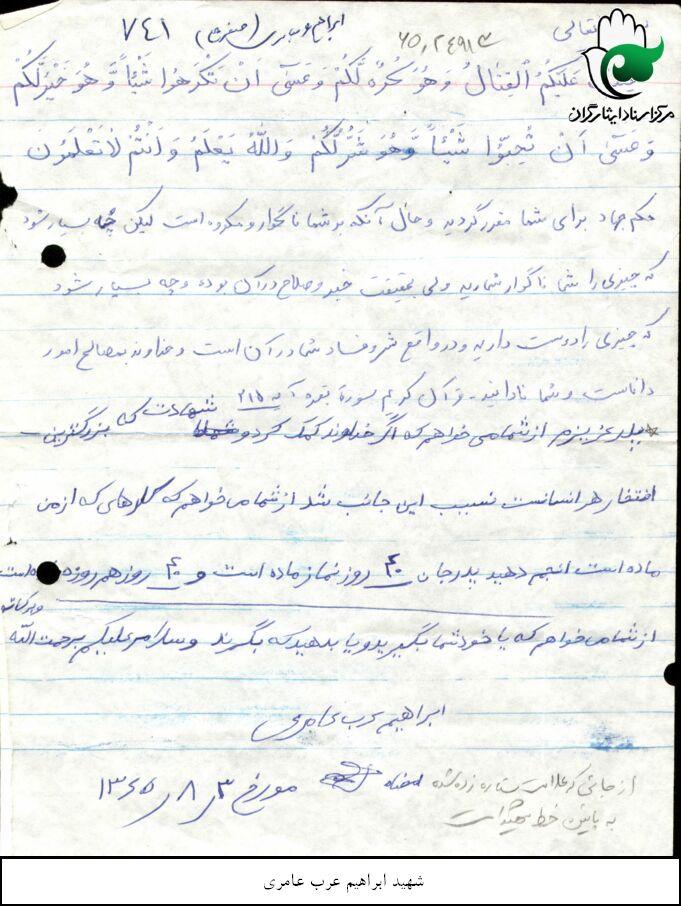 ابراهیم عرب عامری ۷۴۱
۶۵٫۲۴۹۱۳
تعالی
مرکز اسناد ایثارگران
عَلَیْکُمُ الْقِتٰالُ وَ هُوَ کُرْهٌ لَّکُمْ وَ عَسَیٰ اَنْ تَکْرَهُوا شَیْئاً وَّ هُوَ خَیْرٌ لَّکُمْ
وَ عَسَیٰ اَنْ تُحِبّوُا شَیْئاً وَّ هُوَ شَرٌّ لَّکُمْ وَاللّٰهُ یَعْلَمُ وَ اَنْتُمْ لٰا تَعْلَمُونَ
حکم جهاد برای شما مقرر گردید و حال آنکه بر شما ناگوار و مکروه است لیکن چه بسیار شود
که چیزی را شما ناگوار شمارید ولی بحقیقت خیر و صلاح در آن بوده و چه بسیار شود
که چیزی را دوست دارید و در واقع شر و فساد شما در آن است و خداوند بمصالح امور
داناست و شما نادانید - قرآن کریم سورة بقره آیه ۲۱۵
پدر عزیزم از شما می خواهم که اگر خداوند کمک کرد و شهادت که بزرگترین
افتخار هر انسانست نسیب این جانب شد از شما می خواهم که کارهای که از من
مانده است انجم دهید پدر جان ۴۰ روز نماز مانده است و ۴۰ روز هم روزه است
از شما می خواهم که یا خود شما بگیرید و یا بدهید که بگیرند وسلام علیکم برحمت الله
وبرکاته
ابراهیم عرب عامری
مورخ ۳ر۸ر۱۳۶۵
امضاء
از جائی که علامت ستاره زده شده
به پائین خط شهید است
شهید ابراهیم عرب عامری